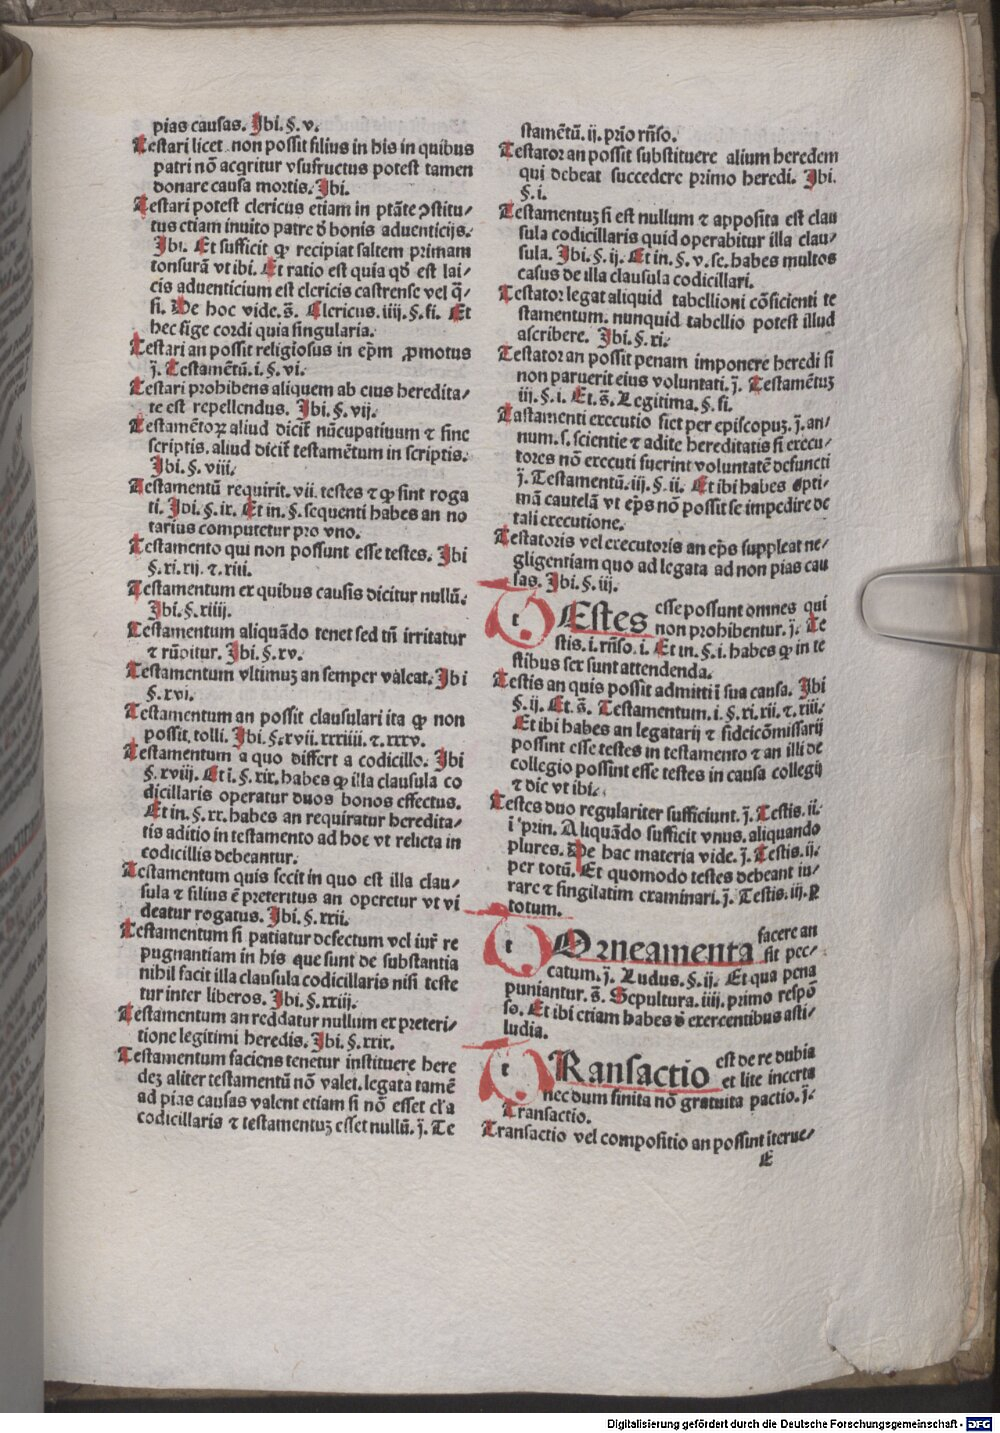 pias causas. Ibi. §. v.
Testari licet non possit filius in his in quibus
patri nō acqritur vsufructus potest tamen
donare causa mortis. Ibi.
Testari potest clericus etiam in ptāte ꝯstitu/
tus etiam inuito patre d̄ bonis aduenticijs.
Ibi. Et sufficit ꝙ recipiat saltem primam
tonsurā vt ibi. Et ratio est quia qd̄ est lai/
cis aduenticium est clericis castrense vel q̄/
si. De hoc vide. s̄. Clericus. iiij. §. fi. Et
hec fige cordi quia singularia.
Testari an possit religiosus in ep̄m ꝓmotus
j̄. Testamētū. i. §. vi.
Testari prohibens aliquem ab eius heredita/
te est repellendus. Ibi. §. vij.
Testamētoꝝ aliud dicit̄ nūcupatiuum ⁊ sine
scriptis. aliud dicit̄ testamētum in scriptis.
Ibi. §. viii.
Testamentū requirit. vii. testes ⁊ ꝙ sint roga
ti. Ibi. §. ix. Et in. §. sequenti habes an no
tarius computetur pro vno.
Testamento qui non possunt esse testes. Ibi
§. xi. xij. ⁊. xiii.
Testamentum ex quibus causis dicitur nullū.
Ibi. §. xiiij.
Testamentum aliquādo tenet sed tn̄ irritatur
⁊ rūpitur. Ibi. §. xv.
Testamentum vltimuꝫ an semper valeat. Ibi
§. xvi.
Testamentum an possit clausulari ita ꝙ non
possit. tolli. Ibi. §. xvii. xxxiiii. ⁊. xxxv.
Testamentum a quo differt a codicillo. Ibi
§. xviij. Et ī. §. xix. habes ꝙ illa clausula co
dicillaris operatur duos bonos effectus.
Et in. §. xx. habes an requiratur heredita/
tis aditio in testamento ad hoc vt relicta in
codicillis debeantur.
Testamentum quis fecit in quo est illa clau/
sula ⁊ filius ē preteritus an operetur vt vi
deatur rogatus. Ibi. §. xxii.
Testamentum si patiatur defectum vel iur̄ re
pugnantiam in his que sunt de substantia
nihil facit illa clausula codicillaris nisi teste
tur inter liberos. Ibi. §. xxiij.
Testamentum an reddatur nullum ex preteri/
tione legitimi heredis. Ibi. §. xxix.
Testamentum faciens tenetur instituere here
deꝫ aliter testamentū nō valet. legata tamē
ad pias causas valent etiam si nō esset cl'a
codicillaris ⁊ testamentuꝫ esset nullū. j̄. Te
stamētū. ij. prio rn̄so.
Testator an possit substituere alium heredem
qui debeat succedere primo heredi. Ibi.
§. i.
Testamentuꝫ si est nullum ⁊ apposita est clau
sula codicillaris quid operabitur illa clau/
sula. Ibi. §. ij. Et in. §. v. se. habes multos
casus de illa clausula codicillari.
Testator legat aliquid tabellioni cōficienti te
stamentum. nunquid tabellio potest illud
ascribere. Ibi. §. xi.
Testator an possit penam imponere heredi si
non paruerit eius voluntati. j̄. Testamētuꝫ
iij. §. i. Et. s̄. Legitima. §. fi.
Tastamenti executio fiet per episcopuꝫ. j̄. an/
num. s. scientie ⁊ adite hereditatis si execu/
tores nō executi fuerint voluntatē defuncti
j̄. Testamentū. iij. §. ii. Et ibi habes opti/
mā cautelā vt ep̄s nō possit se impedire de
tali executione.
Testatoris vel executoris an ep̄s suppleat ne/
gligentiam quo ad legata ad non pias cau
sas. Ibi. §. iij.
t Estes esse possunt omnes qui
non prohibentur. j̄. Te
stis. i. rn̄so. i. Et in. §. i. habes ꝙ in te
stibus sex sunt attendenda.
Testis an quis possit admitti ī sua causa. Ibi
§. ij. Et. s̄. Testamentum. i. §. xi. xii. ⁊. xiii.
Et ibi habes an legatarij ⁊ fideicōmissarij
possint esse testes in testamento ⁊ an illi de
collegio possint esse testes in causa collegij
⁊ dic vt ibi.
Testes duo regulariter sufficiunt. j̄. Testis. ii.
ī prin. Aliquādo sufficit vnus. aliquando
plures. De hac materia vide. j̄. Testis. ij.
per totū. Et quomodo testes debeant iu/
rare ⁊ singilatim examinari. j̄. Testis. iij. ꝑ
totum.
t Orneamenta facere an
sit pec/
catum. j̄. Ludus. §. ij. Et qua pena
puniantur. s̄. Sepultura. iiij. primo respō
so. Et ibi etiam habes d̄ exercentibus asti/
ludia.
t Ransactio est de re dubia
et lite incerta
nec dum finita nō gratuita pactio. j̄.
Transactio.
Transactio vel compositio an possint iterue/
E
Digitalisierung gefördert durch die Deutsche Forschungsgemeinschaft - DFG